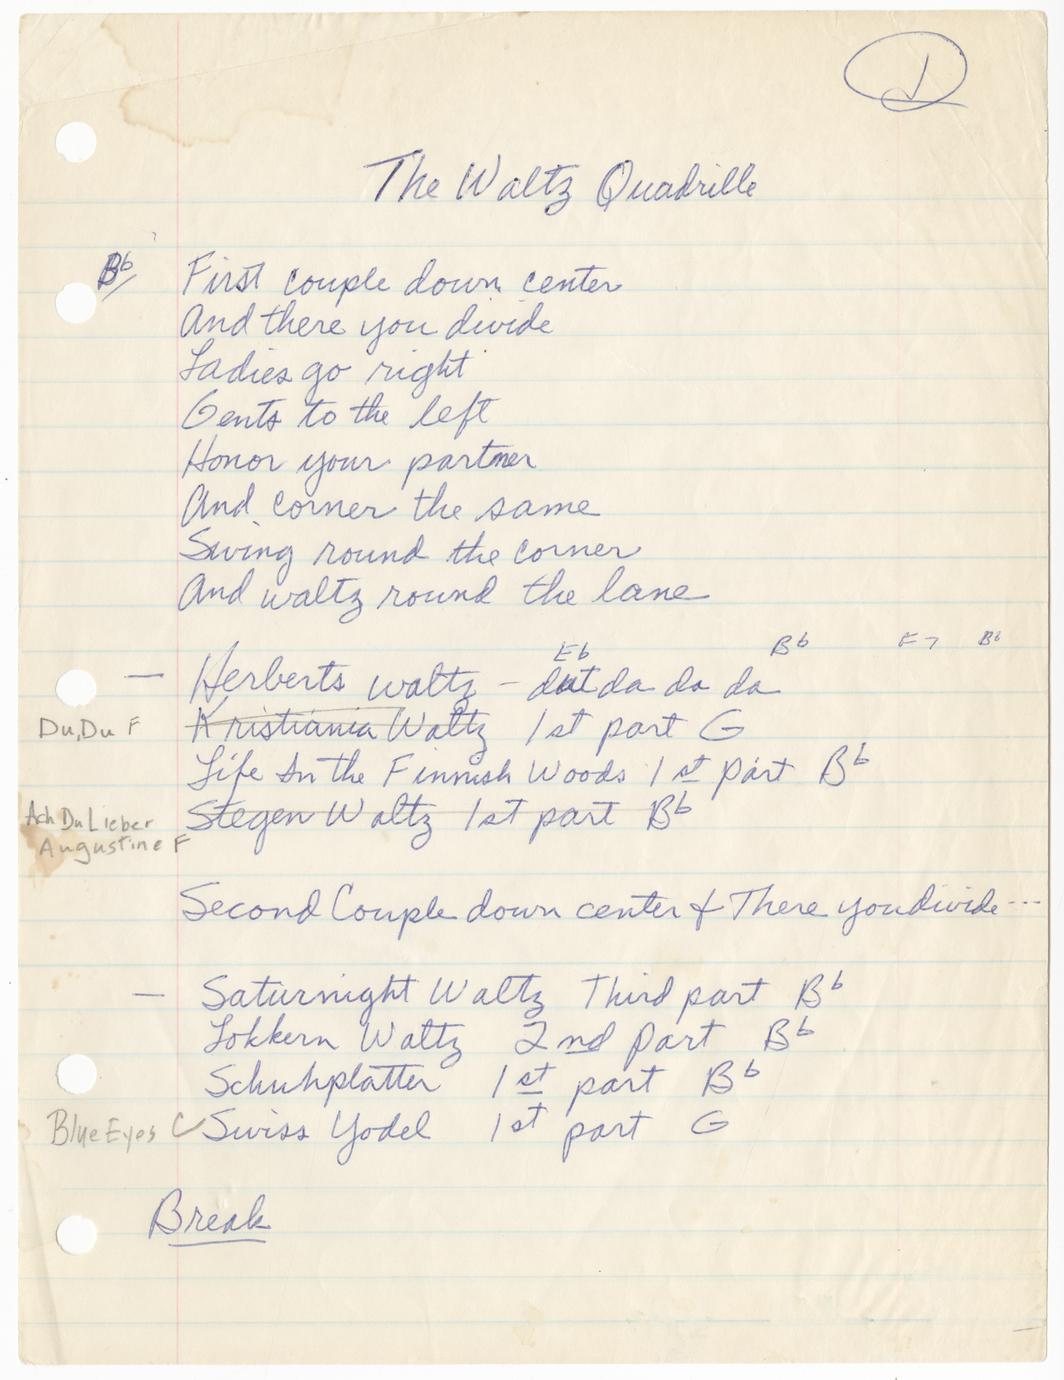 1
The Waltz Quadrille
Bb First couple down center
And there you divide
Ladies go right
Gents to the left
Honor your partner
And corner the same
Swing round the corner
And waltz round the lane
Eb Bb F7 Bb
— Herberts waltz – dut da da da
Du, Du F Kristiania Waltz 1st part G
Life In the Finnish Woods 1st part Bb
Ach Du Lieber Augustine F Stegen Waltz 1st part Bb
Second Couple down center & There you divide ---
— Saturnight Waltz Third part Bb
Lokkern Waltz 2nd Part Bb
Schuhplatter 1st part Bb
Blue Eyes C Swiss Yodel 1st part G
Break